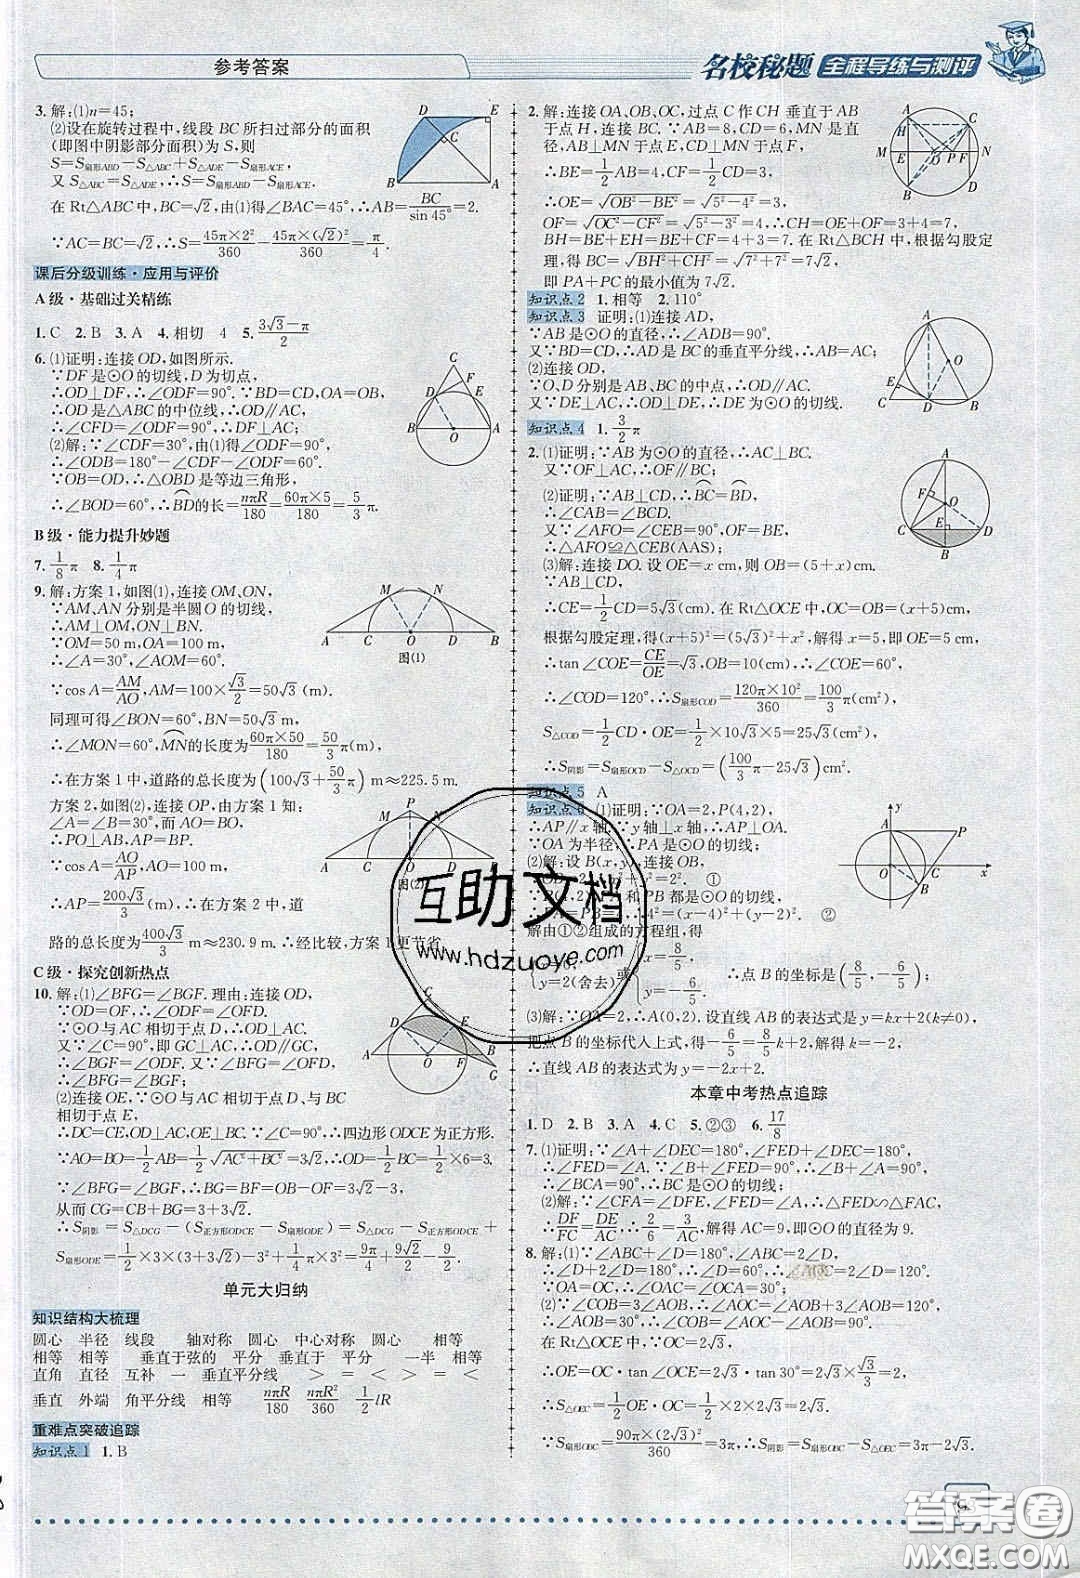 参考答案
名校秘题 全程导练与测评
3. 解:(1)n=45;
(2)设在旋转过程中,线段 BC 所扫过部分的面积
(即图中阴影部分面积)为 S,则
S=S扇形ABD−S△ABC+S△ADE−S扇形ACE,
又 S△ABC=S△ADE,∴S=S扇形ABD−S扇形ACE.
在 Rt△ABC 中,BC=√2,由(1)得∠BAC=45°,∴AB=BC/sin45°=2.
∵AC=BC=√2,∴S=45π×2²/360−45π×(√2)²/360=π/4.
课后分级训练·应用与评价
A 级·基础过关精练
1. C 2. B 3. A 4. 相切 4 5. (3√3−π)/2
6. (1)证明:连接 OD,如图所示.
∵DF 是⊙O 的切线,D 为切点,
∴OD⊥DF,∴∠ODF=90°.∵BD=CD,OA=OB,
∴OD 是△ABC 的中位线,∴OD∥AC,
∴∠CFD=∠ODF=90°,∴DF⊥AC;
(2)解:∵∠CDF=30°,由(1)得∠ODF=90°,
∴∠ODB=180°−∠CDF−∠ODF=60°.
∵OB=OD,∴△OBD 是等边三角形,
∴∠BOD=60°,∴BD的长=nπR/180=60π×5/180=5/3π.
B 级·能力提升妙题
7. 1/8π 8. 1/4π
9. 解:方案 1,如图(1),连接 OM,ON,
∵AM,AN 分别是半圆 O 的切线,
∴AM⊥OM,ON⊥BN.
∵OM=50 m,OA=100 m,
∴∠A=30°,∠AOM=60°.
∵cos A=AM/AO,AM=100×√3/2=50√3 (m).
同理可得∠BON=60°,BN=50√3 m.
∴∠MON=60°,MN的长度为60π×50/180=50/3π(m).
∴在方案 1 中,道路的总长度为(100√3+50/3π) m≈225.5 m.
方案 2,如图(2),连接 OP,由方案 1 知:
∠A=∠B=30°,而 AO=BO,
∴PO⊥AB,AP=BP.
∵cos A=AO/AP,AO=100 m,
∴AP=200√3/3(m),∴在方案 2 中,道
路的总长度为400√3/3 m≈230.9 m.∴经比较,方案 1 更节省.
图(1)
图(2)
C 级·探究创新热点
10. 解:(1)∠BFG=∠BGF. 理由:连接 OD,
∵OD=OF,∴∠ODF=∠OFD.
∵⊙O 与 AC 相切于点 D,∴OD⊥AC.
∵∠C=90°,即 GC⊥AC,∴OD∥GC,
∴∠BGF=∠ODF.∵∠BFG=∠OFD,
∴∠BFG=∠BGF;
(2)连接 OE,∵⊙O 与 AC 相切于点 D、与 BC
相切于点 E,
∴DC=CE,OD⊥AC,OE⊥BC.∵∠C=90°,∴四边形 ODCE 为正方形.
∵AO=BO=1/2AB=1/2√(AC²+BC²)=3√2,∴OD=1/2BC=1/2×6=3.
∵∠BFG=∠BGF,∴BG=BF=OB−OF=3√2−3,
从而 CG=CB+BG=3+3√2,
∴S阴影=S△DCG−(S正方形ODCE−S扇形ODE)=S△DCG−S正方形ODCE+
S扇形ODE=1/2×3×(3+3√2)−3²+1/4π×3²=9π/4+9√2/2−9/2.
单元大归纳
知识结构大梳理
圆心 半径 线段 轴对称 圆心 中心对称 圆心 相等
相等 相等 垂直于弦的 平分 垂直于 平分 一半 相等
直角 直径 互补 一 垂直平分线 > = < > = <
垂直 外端 角平分线 相等 nπR/180 nπR²/360 1/2lR
重难点突破追踪
知识点 1 1. B
2. 解:连接 OA,OB,OC,过点 C 作 CH 垂直于 AB
于点 H,连接 BC.∵AB=8,CD=6,MN 是直
径,AB⊥MN 于点 E,CD⊥MN 于点 F,
∴BE=1/2AB=4,CF=1/2CD=3,
∴OE=√(OB²−BE²)=√(5²−4²)=3,
OF=√(OC²−CF²)=√(5²−3²)=4,∴CH=OE+OF=3+4=7,
BH=BE+EH=BE+CF=4+3=7. 在 Rt△BCH 中,根据勾股定
理,得 BC=√(BH²+CH²)=√(7²+7²)=7√2,
即 PA+PC 的最小值为 7√2.
知识点 2 1. 相等 2. 110°
知识点 3 证明:(1)连接 AD,
∵AB 是⊙O 的直径,∴∠ADB=90°.
又∵BD=CD,∴AD 是 BC 的垂直平分线,∴AB=AC;
(2)连接 OD,
∵O、D 分别是 AB、BC 的中点,∴OD∥AC.
∵DE⊥AC,∴OD⊥DE,∴DE 为⊙O 的切线.
知识点 4 1. 3/2π
2. (1)证明:∵AB 为⊙O 的直径,∴AC⊥BC.
又∵OF⊥AC,∴OF∥BC;
(2)证明:∵AB⊥CD,∴BC=BD,
∴∠CAB=∠BCD.
又∵∠AFO=∠CEB=90°,OF=BE,
∴△AFO≌△CEB(AAS);
(3)解:连接 DO. 设 OE=x cm,则 OB=(5+x)cm.
∵AB⊥CD,
∴CE=1/2CD=5√3(cm). 在 Rt△OCE 中,OC=OB=(x+5)cm,
根据勾股定理,得(x+5)²=(5√3)²+x²,解得 x=5,即 OE=5 cm,
∴tan∠COE=CE/OE=√3,∴∠COE=60°,
∴∠COD=120°,∴S扇形COD=120π×10²/360=100/3π(cm²),
S△COD=1/2CD·OE=1/2×10√3×5=25√3(cm²),
∴S阴影=S扇形OCD−S△OCD=(100/3π−25√3)cm².
知识点 5 A
知识点 6 (1)证明:∵OA=2,P(4,2),
∴AP∥x 轴.∵y 轴⊥x 轴,∴AP⊥OA.
∵OA 为半径,∴PA 是⊙O 的切线;
(2)解:设 B(x,y),连接 OB,
∵OB=2,∴x²+y²=2². ①
∵P(4,2),PA 和 PB 都是⊙O 的切线,
∴PA=PB=4,∴4²=(x−4)²+(y−2)². ②
解由①②组成的方程组,得
x=0,y=2(舍去) 或 y=−6/5, ∴点 B 的坐标是(8/5,−6/5);
(3)解:∵OA=2,∴A(0,2). 设直线 AB 的表达式是 y=kx+2(k≠0),
把点 B 的坐标代入上式,得−6/5=8/5k+2,解得 k=−2,
∴直线 AB 的表达式为 y=−2x+2.
本章中考热点追踪
1. D 2. B 3. A 4. C 5. ②③ 6. 17/8
7. (1)证明:∵∠A+∠DEC=180°,∠FED+∠DEC=180°,
∴∠FED=∠A.∵∠B+∠FED=90°,∴∠B+∠A=90°,
∴∠BCA=90°,∴BC 是⊙O 的切线;
(2)解:∵∠CFA=∠DFE,∠FED=∠A,∴△FED∽△FAC,
∴DF/FC=DE/AC,∴2/6=3/AC,解得 AC=9,即⊙O 的直径为 9.
8. 解:(1)∵∠ABC+∠D=180°,∠ABC=2∠D,
∴∠D+2∠D=180°,∴∠D=60°,∴∠AOC=2∠D=120°.
∵OA=OC,∴∠OAC=∠OCA=30°;
(2)∵∠COB=3∠AOB,∴∠AOC=∠AOB+3∠AOB=120°,
∴∠AOB=30°,∴∠COB=∠AOC−∠AOB=90°.
在 Rt△OCE 中,∵OC=2√3,
∴OE=OC·tan∠OCE=2√3·tan30°=2√3×√3/3=2,
∴S△OEC=1/2OE·OC=1/2×2×2√3=2√3,
∴S扇形OBC=90π×(2√3)²/360=3π,∴S阴影=S扇形OBC−S△OEC=3π−2√3.
互助文档
www.hdzuoye.com
答案圈
MXQE.COM